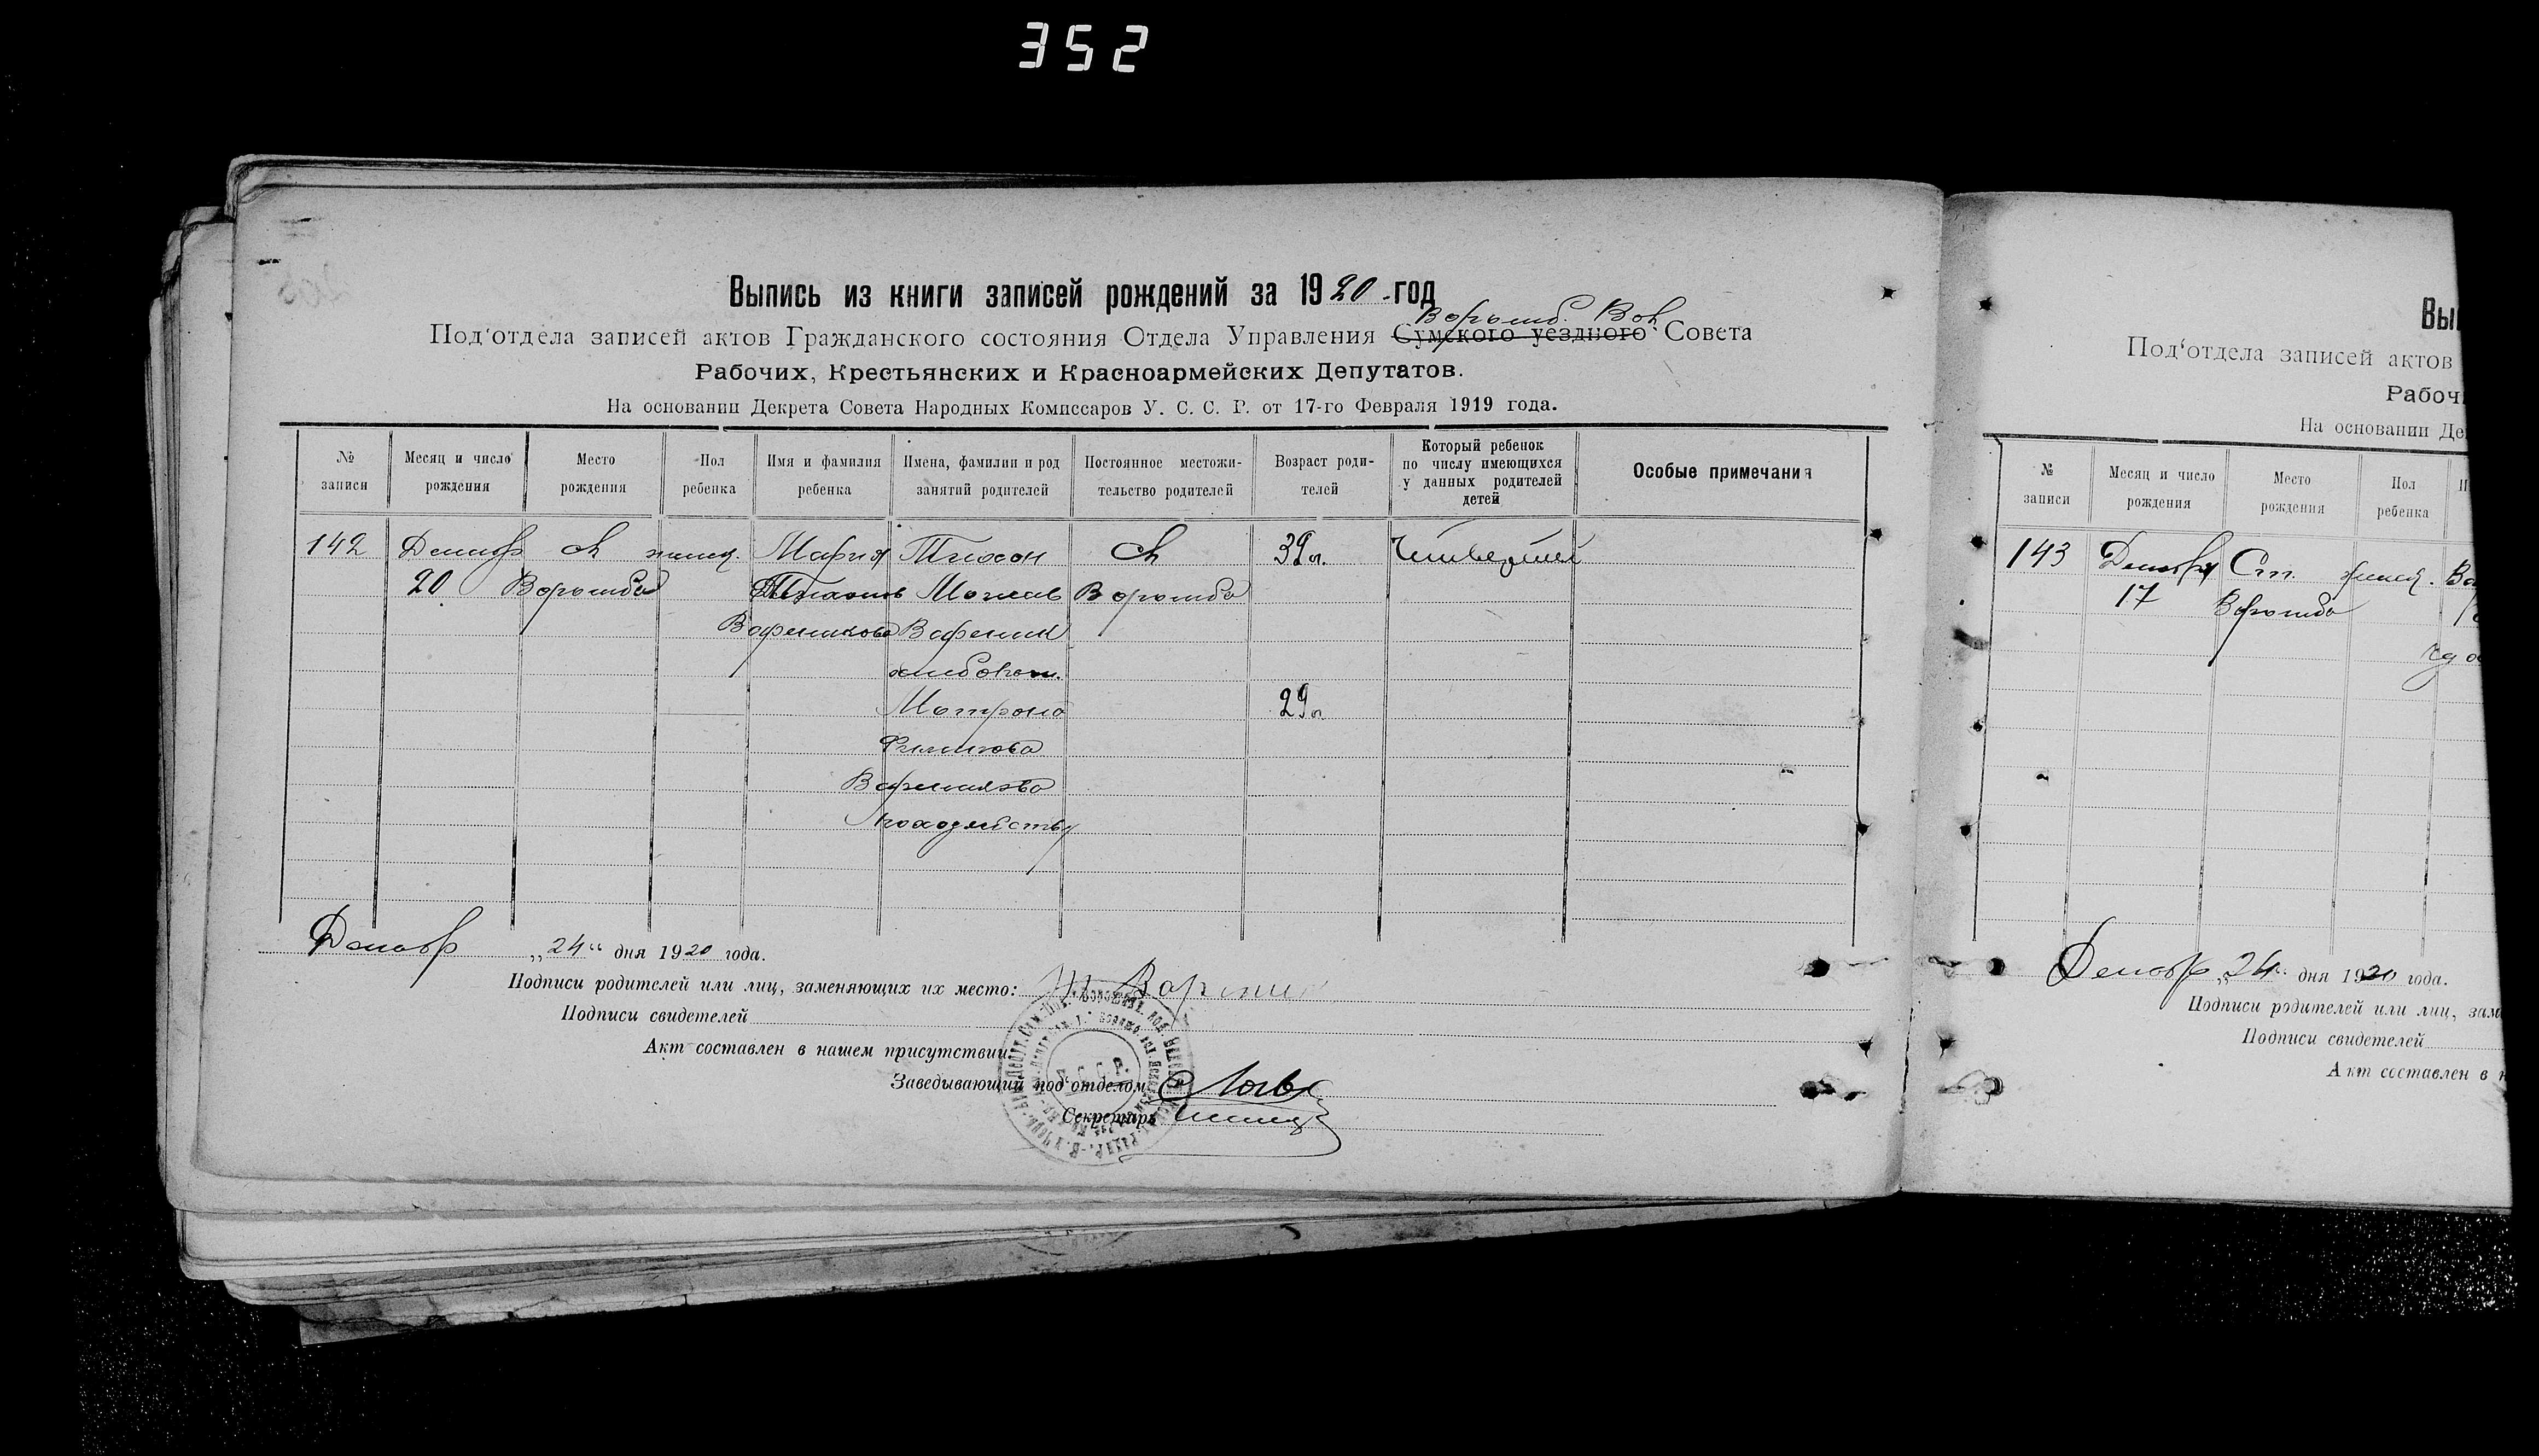 352
Выпись из книги записей рождений за 1920 год
Ворожб. Вол.
Под‘отдела записей актов Гражданского состояния Отдела Управления Сумского уездного Совета
Рабочих, Крестьянских и Красноармейских Депутатов.
На основании Декрета Совета Народных Комиссаров У. С. С. Р. от 17-го Февраля 1919 года.
№ записи
Месяц и число рождения
Место рождения
Пол ребенка
Имя и фамилия ребенка
Имена, фамилии и род занятий родителей
Постоянное местожительство родителей
Возраст родителей
Который ребенок по числу имеющихся у данных родителей детей
Особые примечания
142 Декабр с. женск. Мария Тихон с. 39 л. Четвертый
20 Ворожба Моисеев Ворожба
Вареникова Вареник
хлебопаш.
Матрона 29 л.
Вареникова
похозяйству
Декабр „24“ дня 1920 года.
Подписи родителей или лиц, заменяющих их место: Т. Вареник
Подписи свидетелей
Акт составлен в нашем присутствии
Заведывающий под‘отделом
Секретарь
Вы
Под‘отдела записей актов
Рабоч
На основании Де
№ записи
Месяц и число рождения
Место рождения
Пол ребенка
143 Декабря Ст. женск. Ва
17 Ворожба
Декабр „24“ дня 1920 года.
Подписи родителей или лиц, зам
Подписи свидетелей
Акт составлен в н